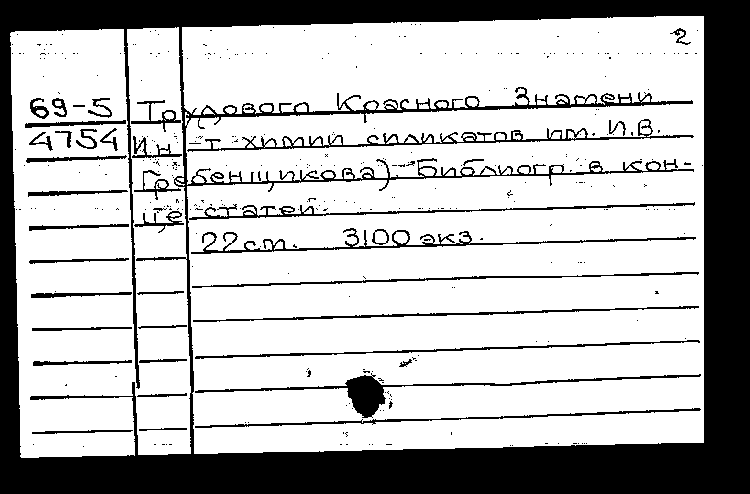 2
69-5 Трудового Красного Знамени
4754 Ин-т химии силикатов им. И.В.
Гребенщикова). Библиогр. в кон-
це статей.
22 см. 3100 экз.